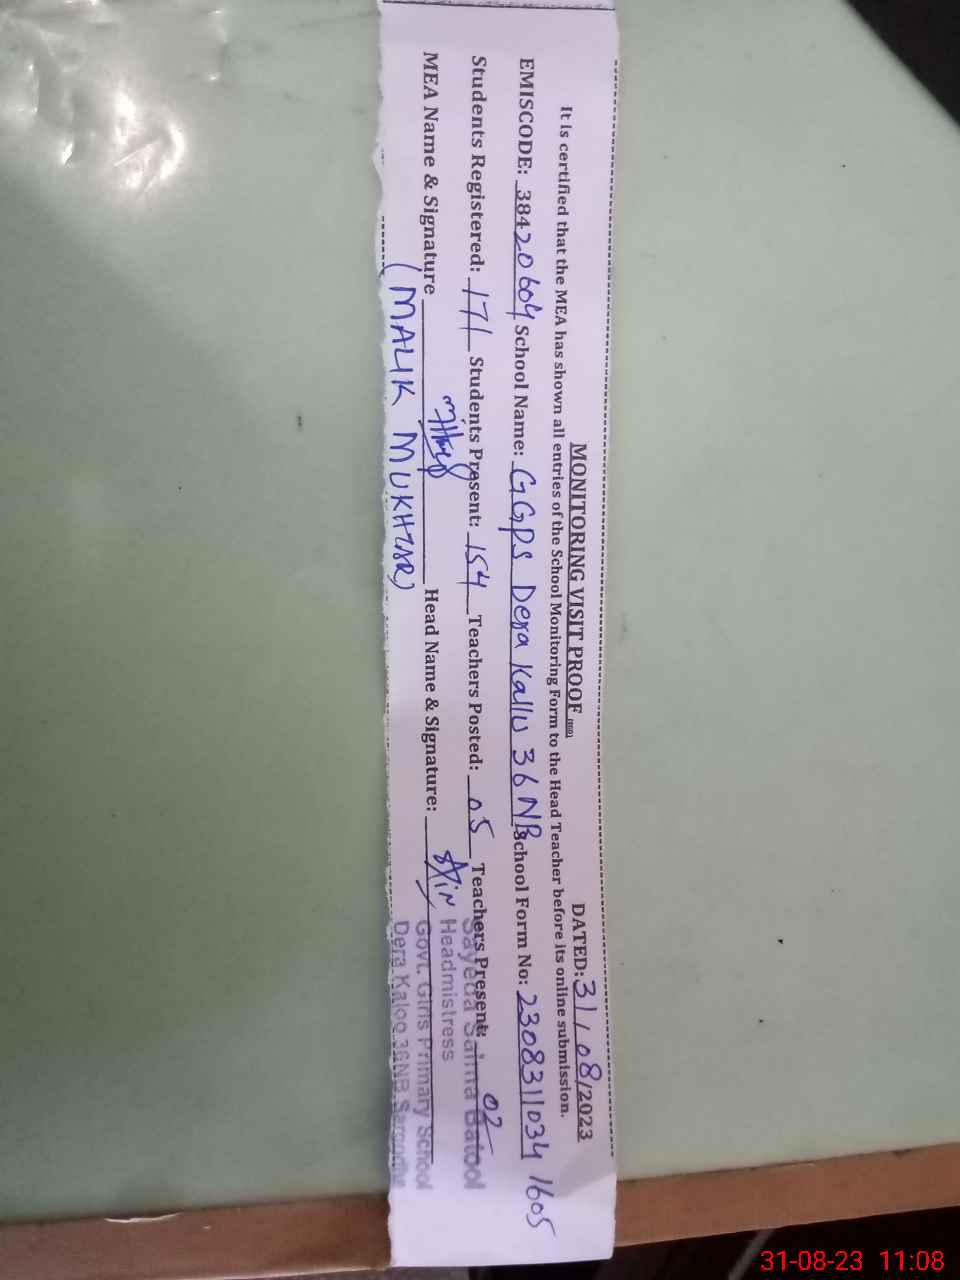 MONITORING VISIT PROOF DATED: 31/08/2023
It is certified that the MEA has shown all entries of the School Monitoring Form to the Head Teacher before its online submission.
EMISCODE: 38420604 School Name: GGPS Dera Kallu 36 NB School Form No: 2308311034 1605
Students Registered: 171 Students Present: 154 Teachers Posted: 05 Teachers Present: 02
MEA Name & Signature Head Name & Signature:
(MALIK MUKHTAR)
Sayeda Saima Batool
Headmistress
Govt. Girls Primary School
Dera Kaloo 36NB Sargodha
31-08-23 11:08